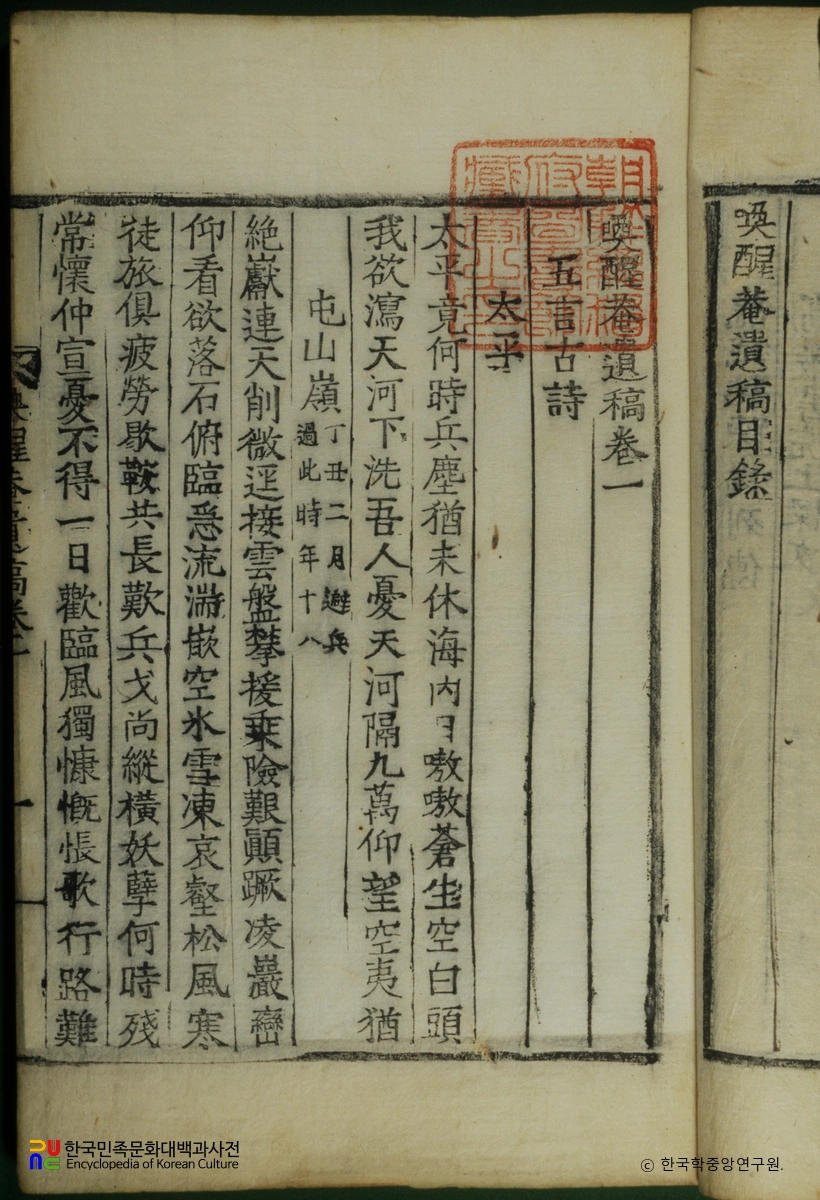 喚醒菴遺稿目錄
喚醒菴遺稿卷一
五言古詩
太平
太平竟何時兵塵猶未休海內日嗷嗷蒼生空白頭
我欲瀉天河下洗吾人憂天河隔九萬仰望空夷猶
屯山嶺丁丑二月避兵過此時年十八
絶巘連天削微逕接雲盤攀援乗險艱顚蹶凌巖巒
仰看欲落石俯臨急流湍嵌空氷雪凍哀壑松風寒
徒旅俱疲勞歇鞍共長歎兵戈尚縱橫妖孽何時殘
常懷仲宣憂不得一日歡臨風獨慷慨悵歌行路難
喚醒菴遺稿卷一
一
한국민족문화대백과사전
Encyclopedia of Korean Culture
© 한국학중앙연구원.